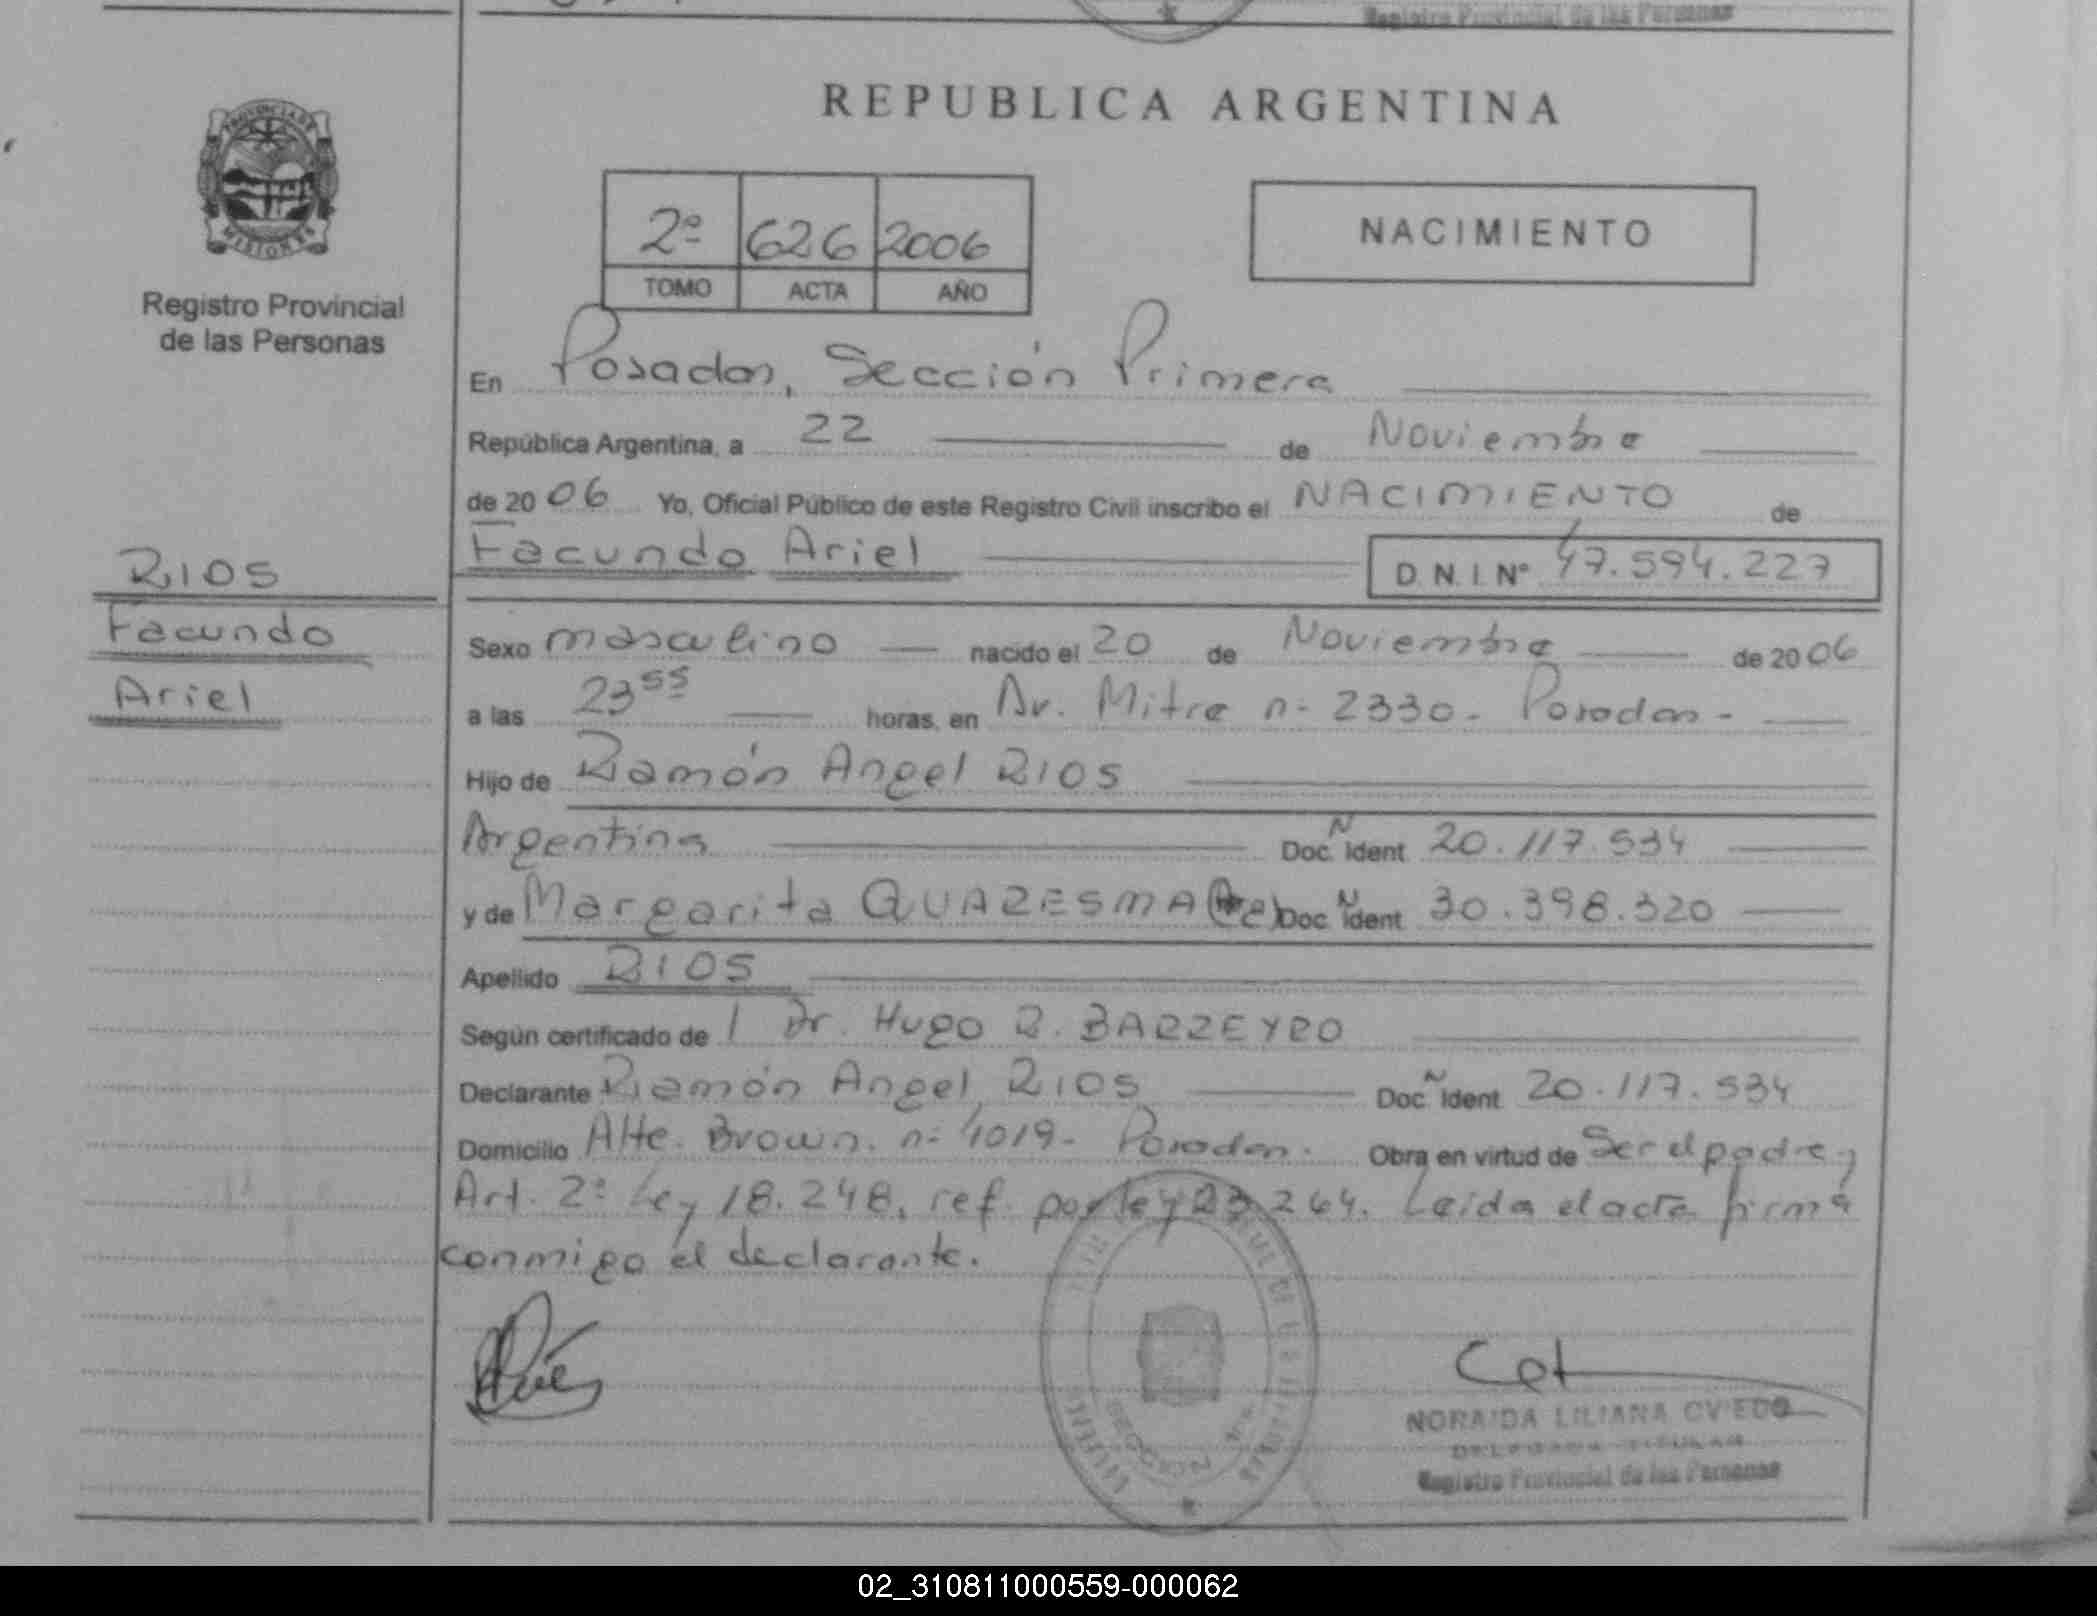 Registro Provincial de las Personas
REPUBLICA ARGENTINA
PROVINCIA DE
MISIONES
Registro Provincial
de las Personas
2º 626 2006
TOMO ACTA AÑO
NACIMIENTO
En Posadas, Sección Primera
República Argentina, a 22 de Noviembre
de 2006 Yo, Oficial Público de este Registro Civil inscribo el NACIMIENTO de
Facundo Ariel D.N.I. Nº 47.594.227
RIOS
Facundo
Ariel
Sexo masculino nacido el 20 de Noviembre de 2006
a las 23 55 horas, en Av. Mitre nº 2330. Posadas -
Hijo de Ramón Angel RIOS
Argentina Doc. N Ident 20.117.534
y de Margarita QUARESMA Doc. N Ident 30.398.320
Apellido RIOS
Según certificado de 1 Dr. Hugo R. BARREYRO
Declarante Ramón Angel RIOS Doc. N Ident 20.117.534
Domicilio Alte. Brown. nº 4019- Posadas. Obra en virtud de Ser el padre y
Art. 2º Ley 18.248, ref. por ley 23.264. Leída el acta firma
conmigo el declarante.
NORAIDA LILIANA OVIEDO
DELEGADA TITULAR
Registro Provincial de las Personas
02_310811000559-000062